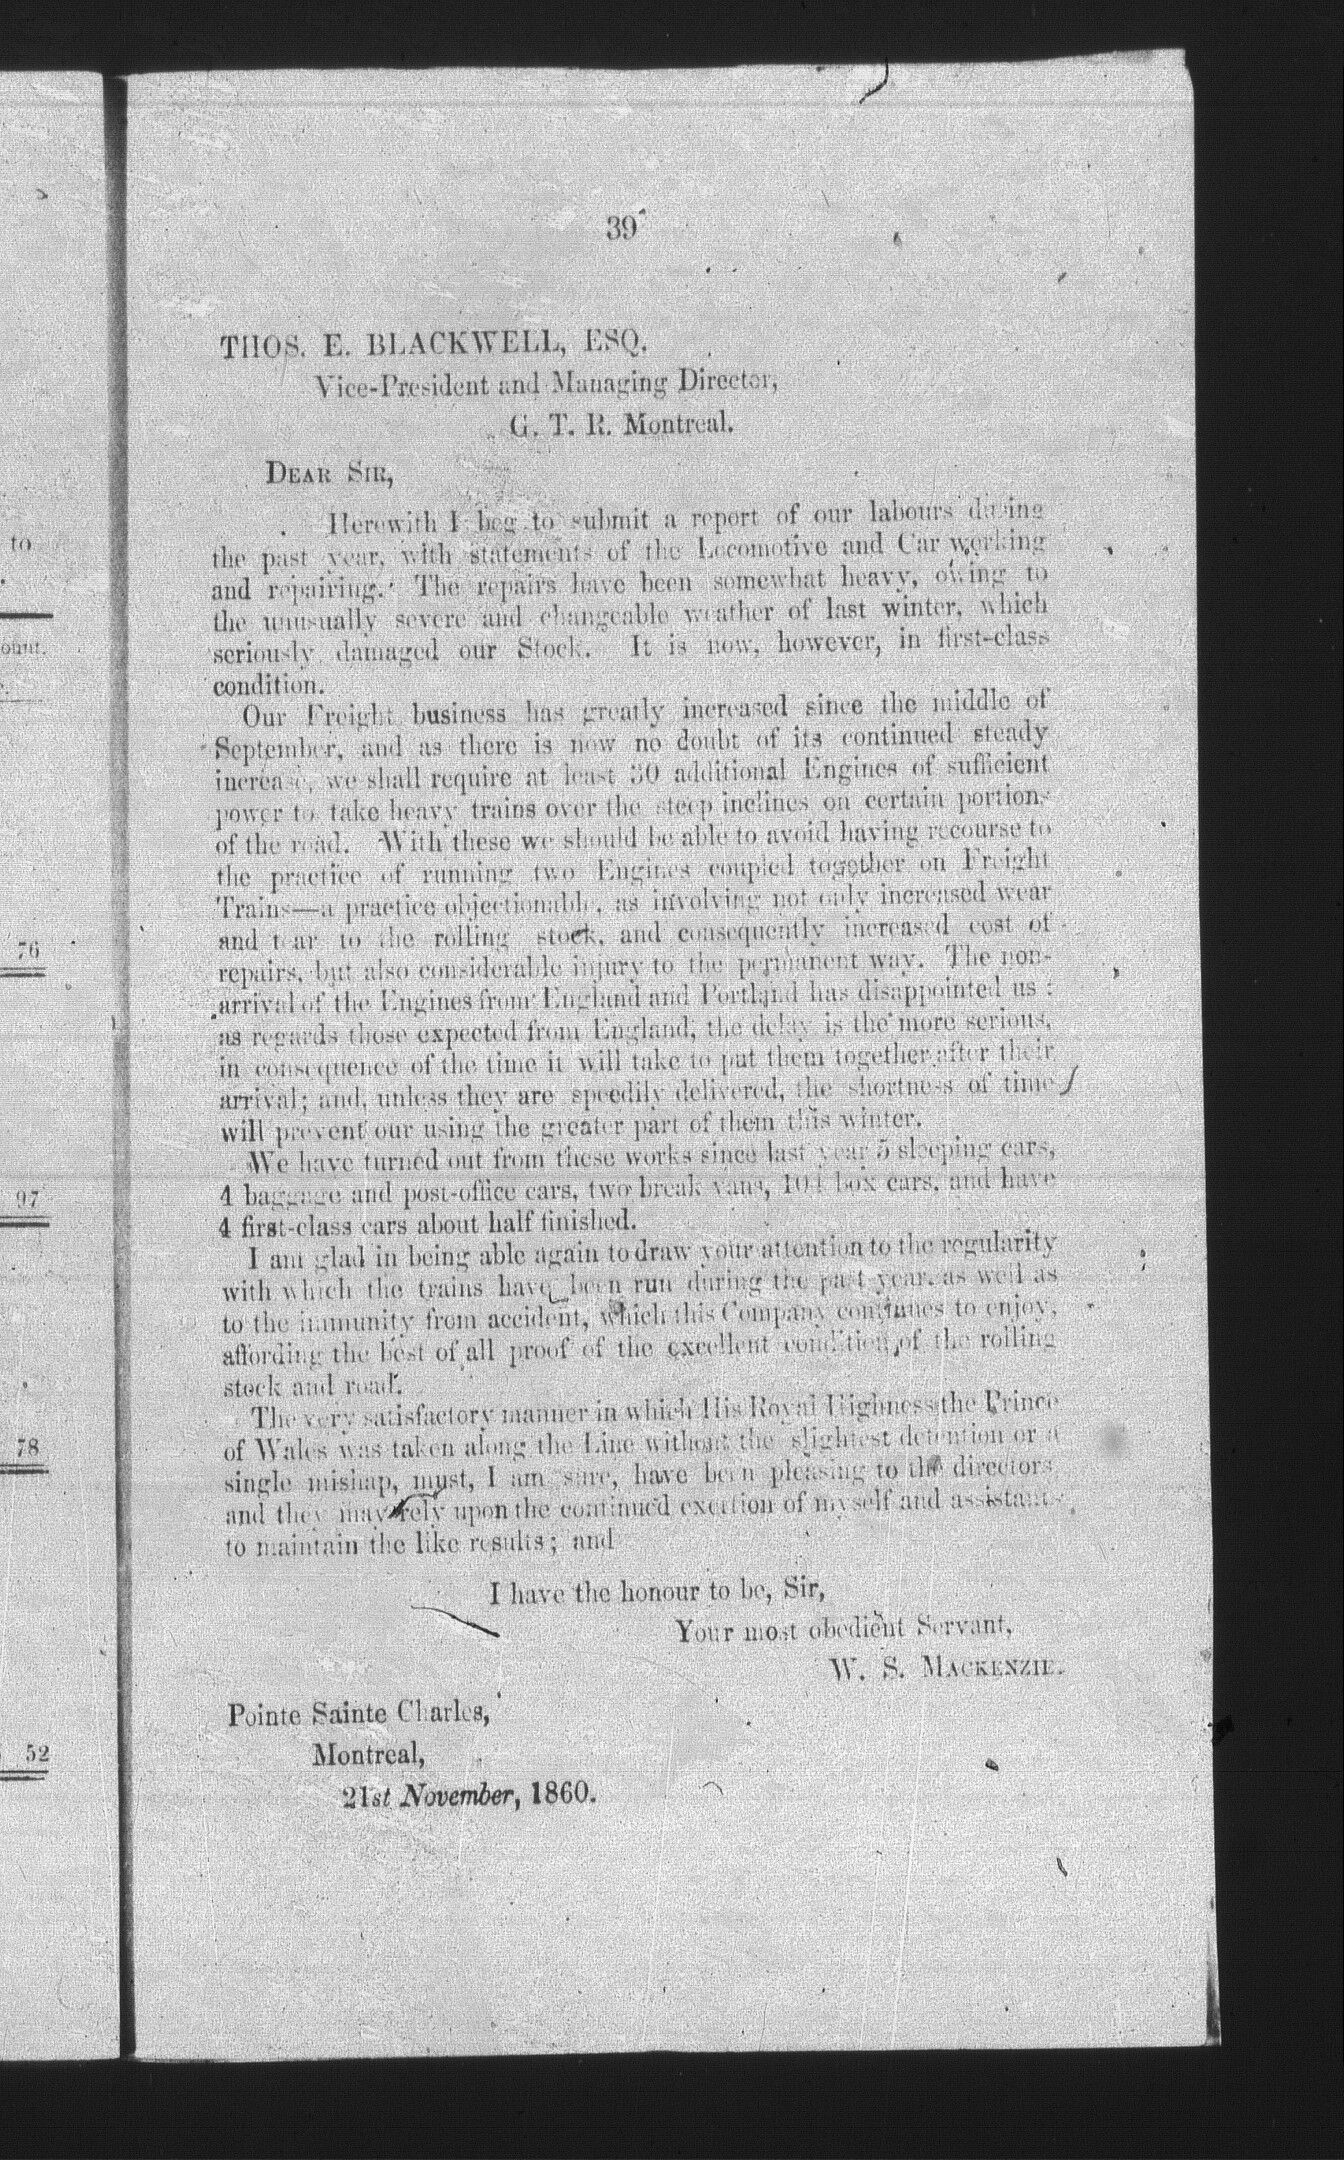 39
THOS. E. BLACKWELL, ESQ.
Vice-President and Managing Director,
G. T. R. Montreal.
DEAR SIR,
Herewith I beg to submit a report of our labours during
the past year, with statements of the Locomotive and Car working
and repairing. The repairs have been somewhat heavy, owing to
the unusually severe and changeable weather of last winter, which
seriously damaged our Stock. It is now, however, in first-class
condition.
Our Freight business has greatly increased since the middle of
September, and as there is now no doubt of its continued steady
increase, we shall require at least 30 additional Engines of sufficient
power to take heavy trains over the steep inclines on certain portions
of the road. With these we should be able to avoid having recourse to
the practice of running two Engines coupled together on Freight
Trains—a practice objectionable, as involving not only increased wear
and tear to the rolling stock, and consequently increased cost of
repairs, but also considerable injury to the permanent way. The non-
arrival of the Engines from England and Portland has disappointed us :
as regards those expected from England, the delay is the more serious,
in consequence of the time it will take to put them together after their
arrival; and, unless they are speedily delivered, the shortness of time
will prevent our using the greater part of them this winter.
We have turned out from these works since last year 5 sleeping cars,
4 baggage and post-office cars, two break vans, 104 box cars, and have
4 first-class cars about half finished.
I am glad in being able again to draw your attention to the regularity
with which the trains have been run during the past year, as well as
to the immunity from accident, which this Company continues to enjoy,
affording the best of all proof of the excellent condition of the rolling
stock and road.
The very satisfactory manner in which His Royal Highness the Prince
of Wales was taken along the Line without the slightest detention or a
single mishap, must, I am sure, have been pleasing to the directors
and they may rely upon the continued exertion of myself and assistants
to maintain the like results; and
I have the honour to be, Sir,
Your most obedient Servant,
W. S. MACKENZIE.
Pointe Sainte Charles,
Montreal,
21st November, 1860.
to
ount.
76
97
78
52